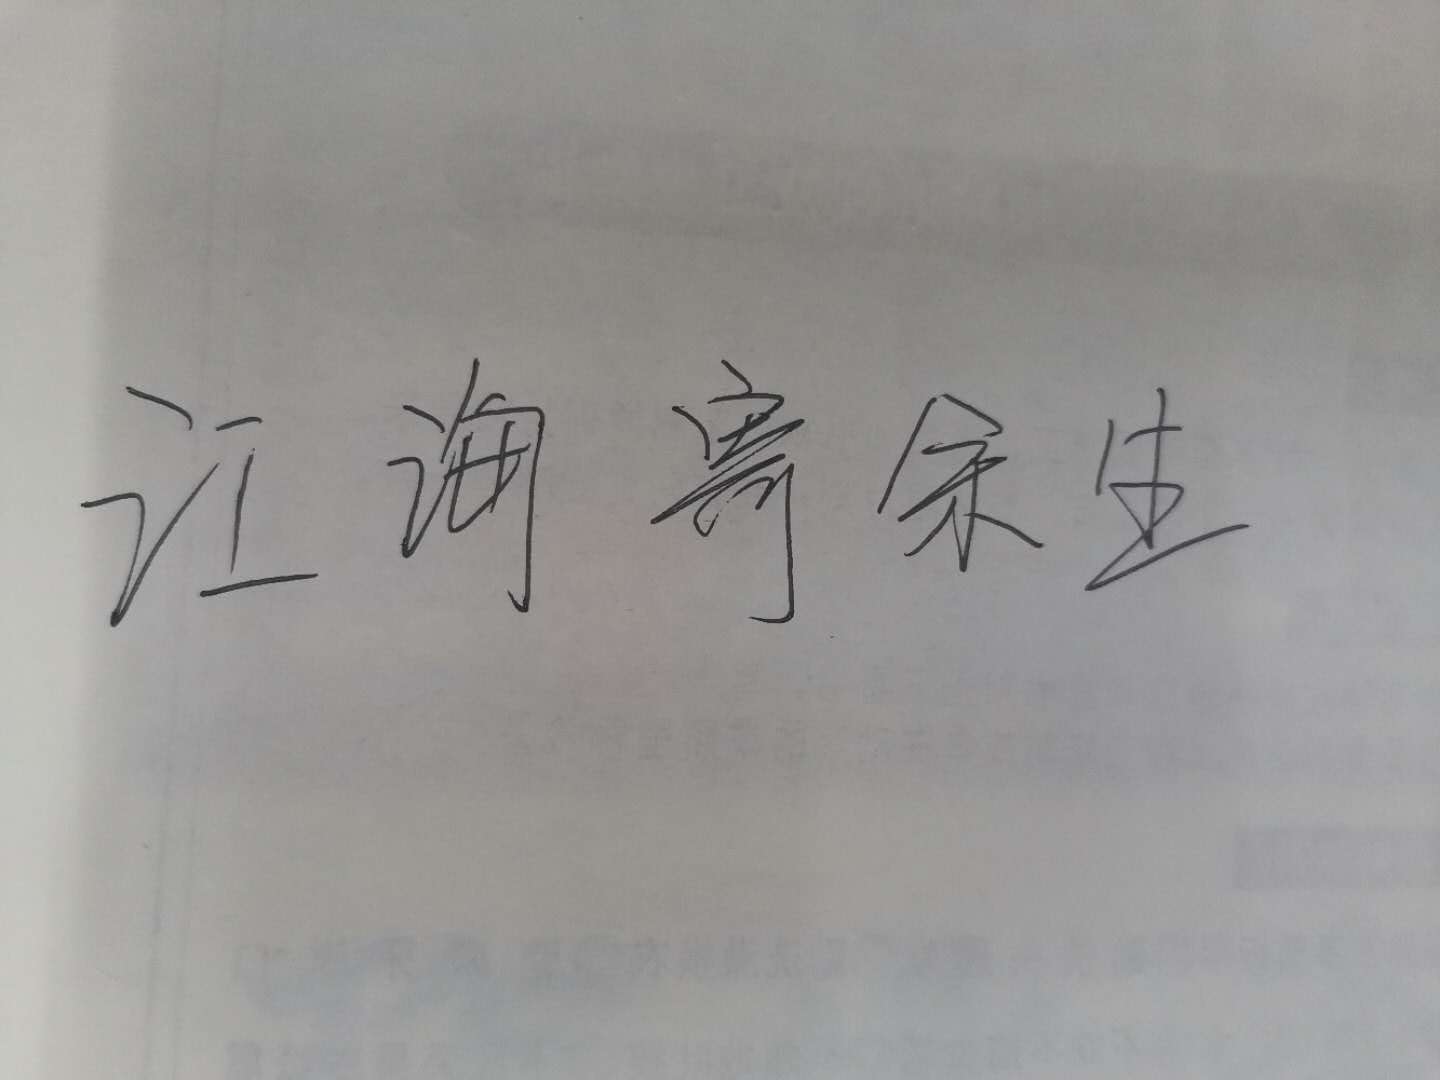 江海寄余生